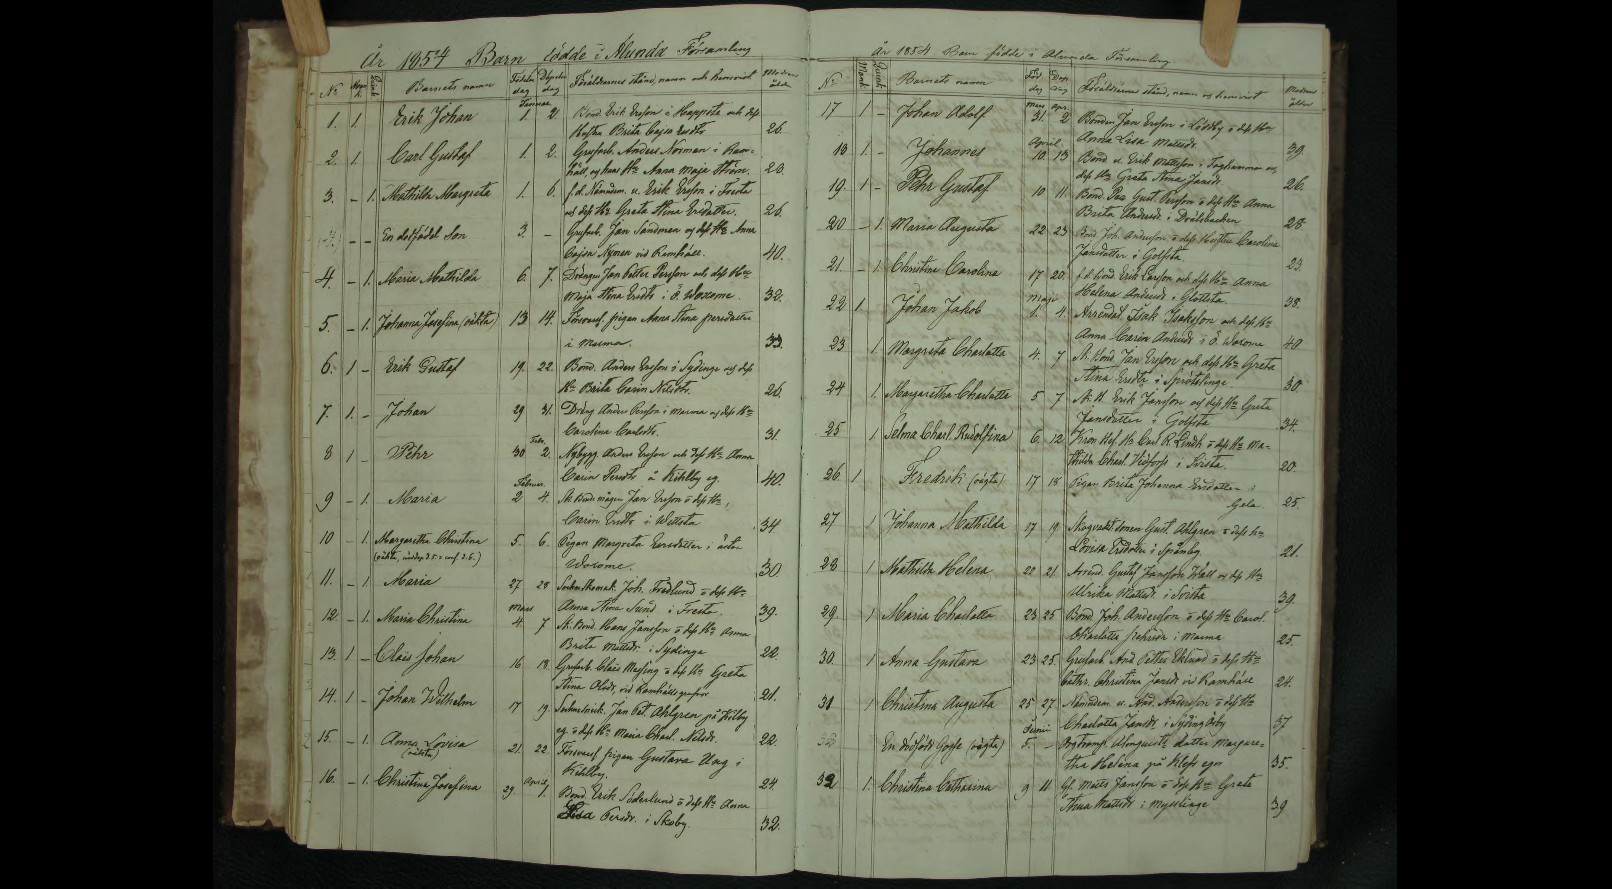 År 1854 Barn födde i Alunda Församling
N: Mank. Qvink. Barnets namn Födelse dag Döpelse dag Föräldrarnes stånd, namn och hemvist Modrens ålder
Januari
1. 1. Erik Johan 1. 2. Bond. Erik Ersson i Haggesta och dess
Hustru Brita Cajsa Ersdtr 26.
2. 1. Carl Gustaf 1. 2. Grufarb. Anders Norman i Ram-
häll, og hans Hu Anna Maja Ström. 20.
3. – 1. Mathilda Margreta 1. 6. f.d. Nämndem. u. Erik Ersson i Foresta
och dess Hu Greta Stina Ersdotter. 26.
– – En dödfödd Son 3. – Grufarb. Jan Sandman og dess Hu Anna
Cajsa Nyman vid Ramhäll. 40.
4. – 1. Maria Mathilda 6. 7. Drängen Jan Petter Persson och dess Hu
Maja Stina Ersdtr i Ö. Woxome. 32.
5. – 1. Johanna Josefina (oäkta) 13 14. Försvarsl. pigan Anna Stina Persdotter
i Marma. 33.
6. 1 – Erik Gustaf 19. 22. Bond. Anders Ersson i Sydinge og dess
Hu Brita Carin Nilsdtr. 26.
7. 1. – Johan 29 31. Dräng Anders Persson i Marma og dess Hu
Carolina Carlsdtr. 31.
8 1 – Pehr 30 Febr. 2. Nybygg. Anders Ersson och dess Hu Anna
Carin Persdtr å Kihlby eg. 40.
Februari
9 – 1. Maria 2 4. Sk. Bondemågen Jan Ersson o dess Hu
Carin Ersdtr i Wettsta 34
10 – 1. Margaretha Christina 5. 6. Pigan Margreta Larsdotter i öster
Woxome. 30.
11. – 1 Maria 27 28 Sockenskomak. Joh. Fredlund o dess Hu
Anna Stina Sund i Foresta. 39.
Mars
12. – 1. Maria Christina 4. 7 Sk. Bond. Hans Jansson o dess Hu Anna
Brita Mattsdr. i Sydinge 22.
13. 1 – Claës Johan 16. 18. Grufarb. Claës Messing o dess Hu Greta
Stina Olsdr. vid Ramhälls grufvor 21.
14. 1 – Johan Wilhelm 17 19. Sockensnick. Jan Pet. Ahlgren på Kilby
eg. o dess Hu Maria Charl. Nilsdr. 22.
15. – 1. Anna Lovisa (oäkta) 21. 22 Försvarsl. pigan Gustava Ung i
Kihlby. 24.
16. – 1. Christina Josefina 29. April 1. Bond. Erik Söderlund o dess Hu Anna
Lisa Persdr. i Skoby. 32.
År 1854 Barn födde i Alunda Församling
N: Mank. Qvink. Barnets namn Föd. dag Döp. dag Föräldrarnes stånd, namn og hemvist Modrens ålder
Mars Apr.
17 1 – Johan Adolf 31. 2 Bonden Jan Ersson i Löddby o dess Hu
Anna Lisa Mattsdr. 39.
April
18 1. – Johannes 10. 13 Bond. u. Erik Mattsson i Foghammar og
dess Hu Greta Stina Jansdr. 26.
19. 1 – Pehr Gustaf 10 11. Bond. Per Gust. Persson o dess Hu Anna
Brita Andersdr. i Dvälsbacken 28.
20 – 1. Maria Augusta 22 23 Bond Joh. Andersson o dess Hustru Carolina
Jansdotter i Golfsta. 23.
21. – 1. Christina Carolina 17 20. f.d. bond. Erik Larsson och dess Hu Anna
Helena Andersdr i Glottsta. 38.
Maji
22 1 Johan Jakob 1. 4. Arrendat. Isak Isaksson och dess Hu
Anna Carin Andersdr i Ö. Woxome 40
23 1. Margreta Charlotta 4. 7 Sk. Bond. Jan Ersson och dess Hu Greta
Stina Ersdtr i Sprötslinge. 30.
24 1. Margaretha Charlotta 5 7 Sk. B. Erik Jansson og dess Hu Greta
Jansdotter i Golfsta. 34.
25 1 Selma Charl. Rudolfina 6. 12 Kron Bef. Hr Carl R. Lindh o dess Hu Ma-
thilda Charl. i Foresta. 20.
26 1 Fredrik (oägta) 17 18 Pigan Brita Johanna Ersdotter i
Gela 25.
27 1 Johanna Mathilda 17 19 Skogvaktdrenen Gust. Ahlgren o dess hu
Lovisa Ersdotter i Spånby. 21.
28 1 Mathilda Helena 20 21. Arrend. Gustaf Jansson Wall og dess Hu
Ulrika Mattsdr. i Foresta 39.
29. 1 Maria Charlotta 23 25 Bond. Joh. Andersson o dess Hu Carol.
Charlotta Pehrsdr i Marma 25.
30. 1 Anna Gustava 23 25. Grufarb. And. Petter Eklund o dess Hu
Cathr. Christina Jansdr vid Ramhäll 24.
31 1 Christina Augusta 25 27. Nämndem. u. And. Andersson o dess Hu
Charlotta Jansdr. i Sydinge by 37
Junii
En dödfödd Gosse (oägta) 5. – dotter Margare-
tha Helena på Klefs egn 35.
32 1. Christina Catharina 9 11 Gf. Matts Jansson o dess Hu Greta
Stina Mattsdr i Mysslinge 39